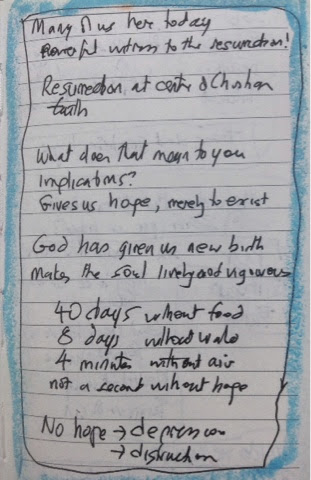 Many of us here today
powerful witness to the resurrection!
Resurrection at centre of Christian
truth
What does that mean to you
Implications?
Gives us hope, merely to exist
God has given us new birth
makes the soul lively and vigorous
40 days without food
8 days without water
4 minutes without air
not a second without hope
No hope → depression
→ distruction